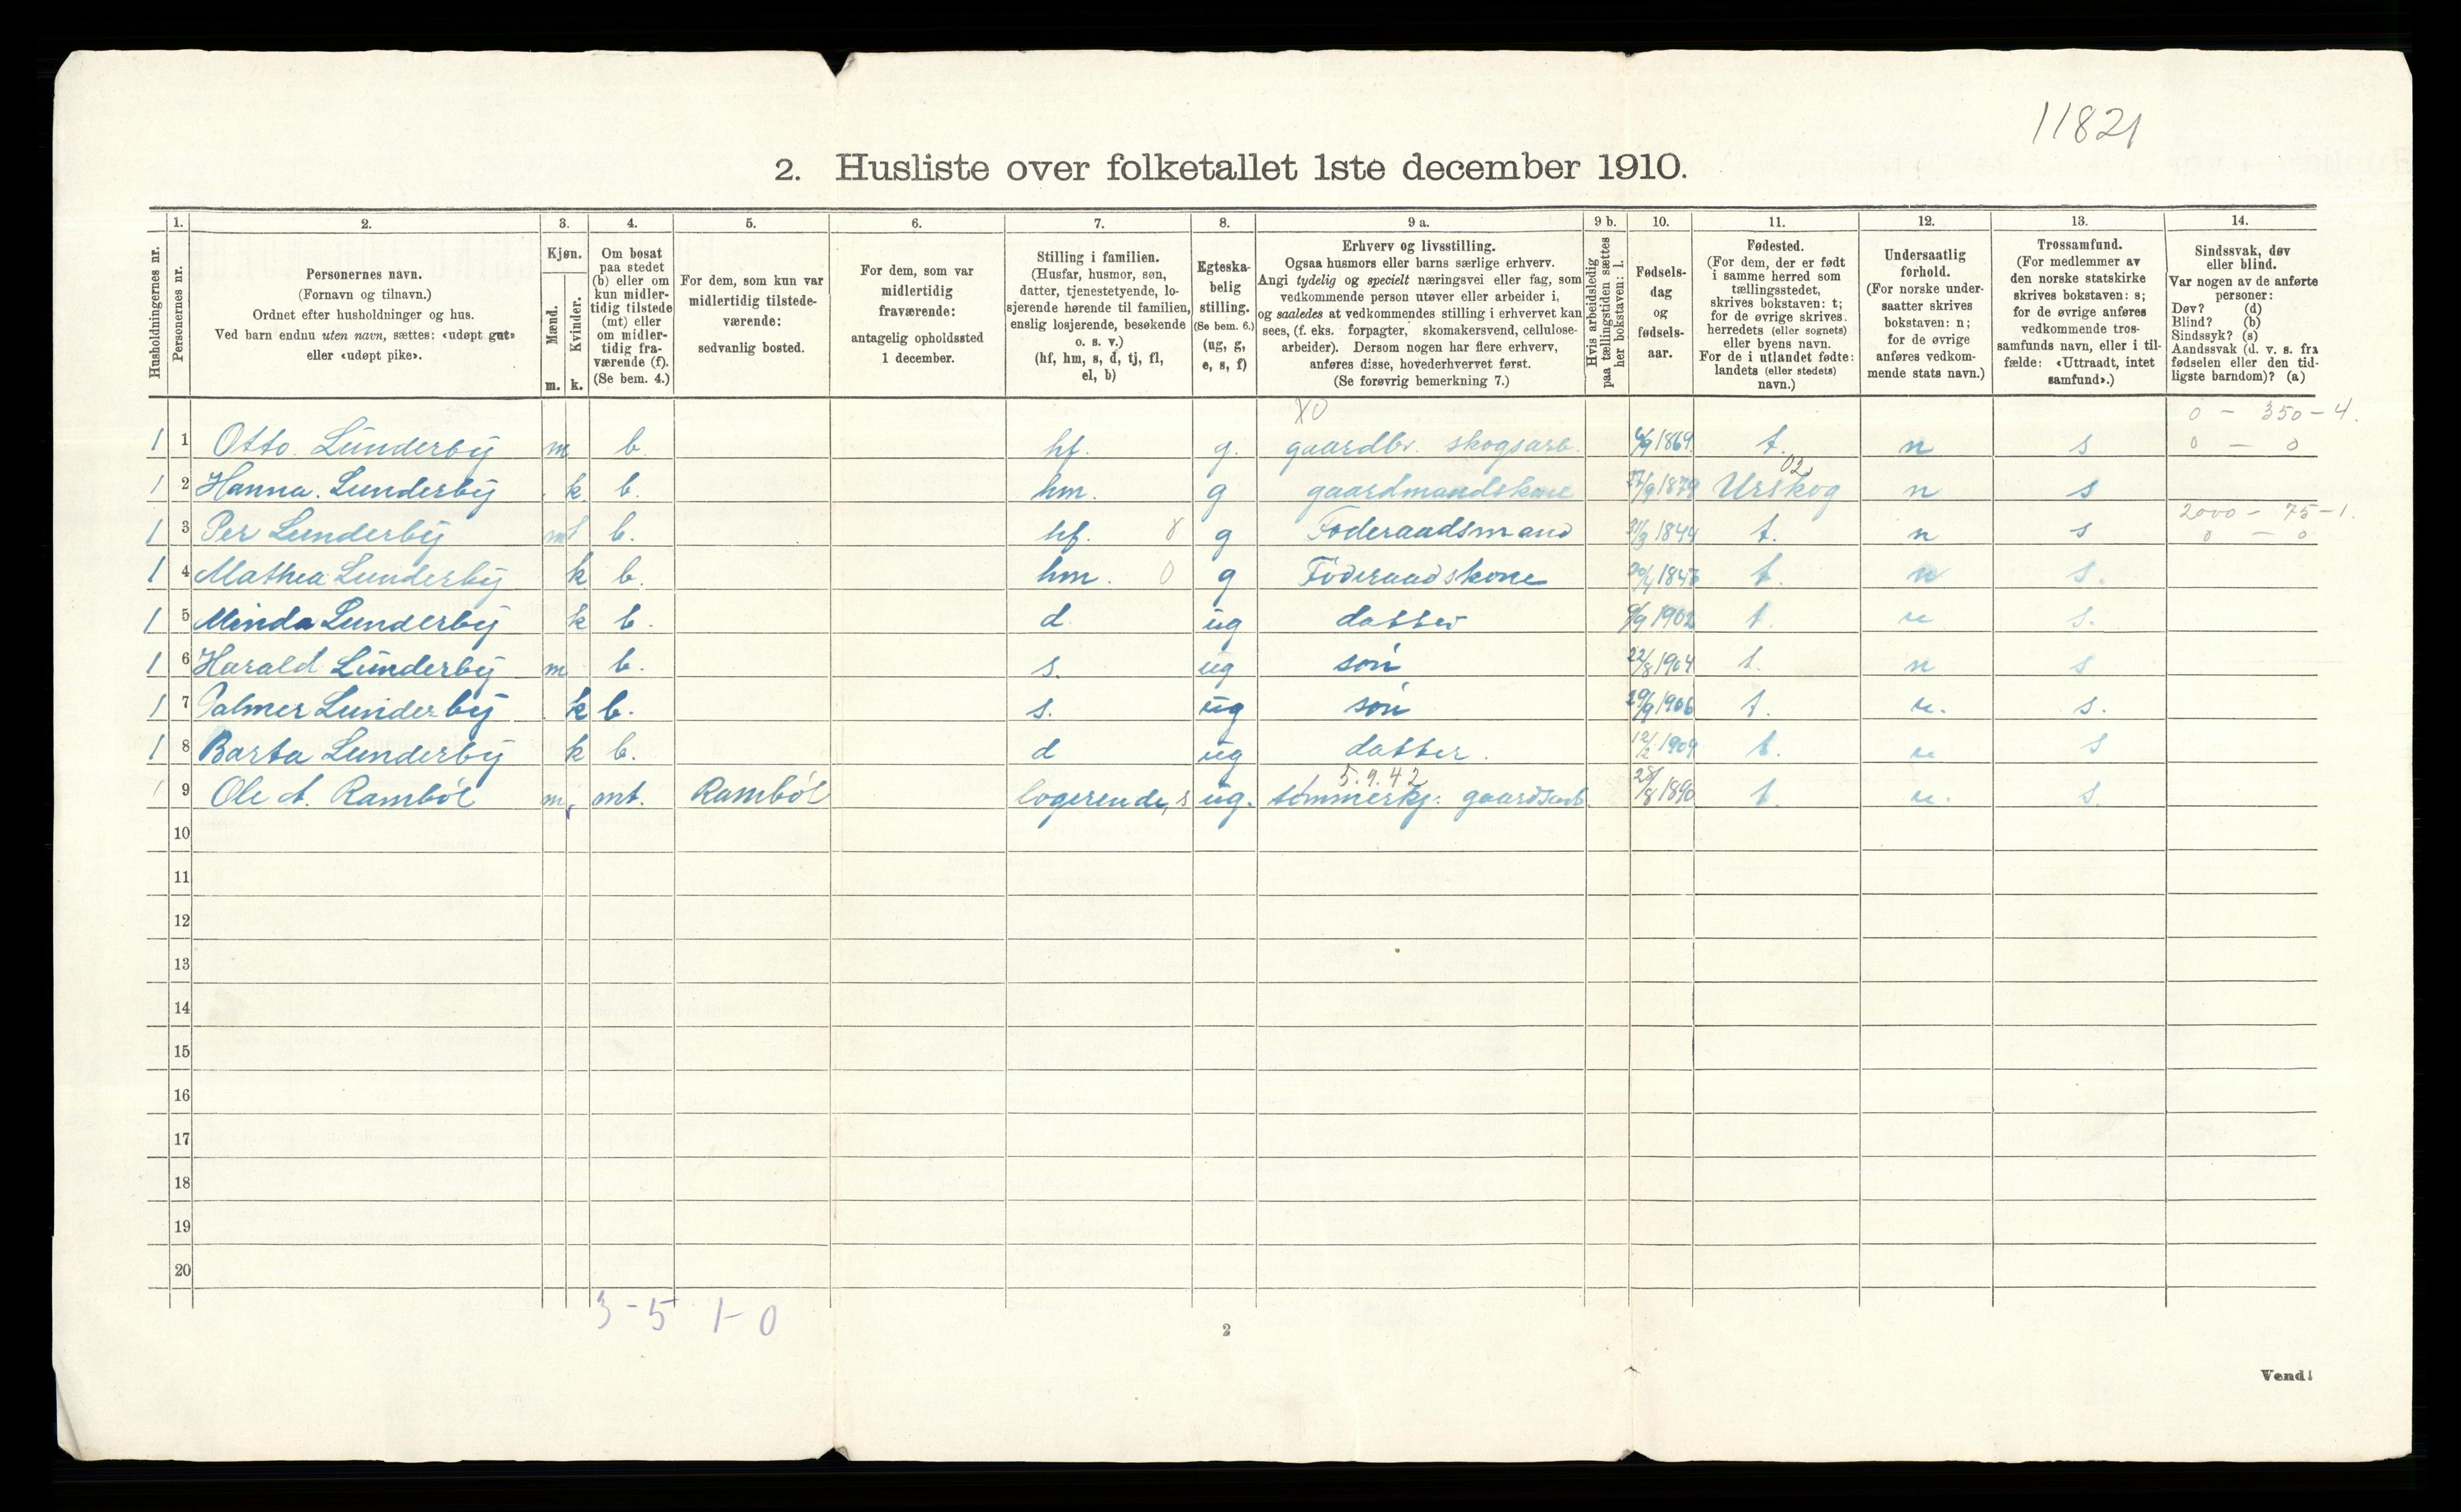 11821
2. Husliste over folketallet 1ste december 1910.
Husholdningernes nr.
1.
Personernes nr.
2.
Personernes navn.
(Fornavn og tilnavn.)
Ordnet efter husholdninger og hus.
Ved barn endnu uten navn, sættes: «udøpt gut»
eller «udøpt pike».
3.
Kjøn.
Mænd.
Kvinder.
m. k.
4.
Om bosat
paa stedet
(b) eller om
kun midler-
tidig tilstede
(mt) eller
om midler-
tidig fra-
værende (f).
(Se bem. 4.)
5.
For dem, som kun var
midlertidig tilstede-
værende:
sedvanlig bosted.
6.
For dem, som var
midlertidig
fraværende:
antagelig opholdssted
1 december.
7.
Stilling i familien.
(Husfar, husmor, søn,
datter, tjenestetyende, lo-
sjerende hørende til familien,
enslig losjerende, besøkende
o. s. v.)
(hf, hm, s, d, tj, fl,
el, b)
8.
Egteska-
belig
stilling.
(Se bem. 6.)
(ug, g,
e, s, f)
9 a.
Erhverv og livsstilling.
Ogsaa husmors eller barns særlige erhverv.
Angi tydelig og specielt næringsvei eller fag, som
vedkommende person utøver eller arbeider i,
og saaledes at vedkommendes stilling i erhvervet kan
sees, (f. eks. forpagter, skomakersvend, cellulose-
arbeider). Dersom nogen har flere erhverv,
anføres disse, hovederhvervet først.
(Se forøvrig bemerkning 7.)
9 b.
Hvis arbeidsledig
paa tællingstiden sættes
her bokstaven: l.
10.
Fødsels-
dag
og
fødsels-
aar.
11.
Fødested.
(For dem, der er født
i samme herred som
tællingsstedet,
skrives bokstaven: t;
for de øvrige skrives
herredets (eller sognets)
eller byens navn.
For de i utlandet fødte:
landets (eller stedets)
navn.)
12.
Undersaatlig
forhold.
(For norske under-
saatter skrives
bokstaven: n;
for de øvrige
anføres vedkom-
mende stats navn.)
13.
Trossamfund.
(For medlemmer av
den norske statskirke
skrives bokstaven: s;
for de øvrige anføres
vedkommende tros-
samfunds navn, eller i til-
fælde: «Uttraadt, intet
samfund».)
14.
Sindssvak, døv
eller blind.
Var nogen av de anførte
personer:
Døv? (d)
Blind? (b)
Sindssyk? (s)
Aandssvak (d. v. s. fra
fødselen eller den tid-
ligste barndom)? (a)
X0 0 - 350 - 4.
1 1 Otto Lunderby m b. hf. g. gaardbr. skogsarb. 1869 t. n s 0 - 0
02
1 2 Hanna. Lunderby k b. hm. g gaardmandskone 27/9 1879 Urskog n s
2000 - 75 - 1.
1 3 Per Lunderby m b. hf. g Foderaadsmand 31/3 1844 t. n s 0 - 0
1 4 Mathea Lunderby k b. hm. 0 g Föderaadskone t. n s.
1 5 Minda Lunderby k b. d ug datter 1902 t. n s.
1 6 Harald Lunderby m b. s. ug sön 22/8 1904 t. n s
1 7 Palmer Lunderby k b. s. ug sön 29/9 1906 t. n. s.
1 8 Barta Lunderby k b. d ug datter. 12/2 1909 t. n s
5.9.42
1 9 Ole A. Ramböl m. mt. Ramböl logerende, s ug. tömmerkj: gaardsarb 28/8 1890 t. n. s.
10
11
12
13
14
15
16
17
18
19
20
3-5 1-0
2
Vend!